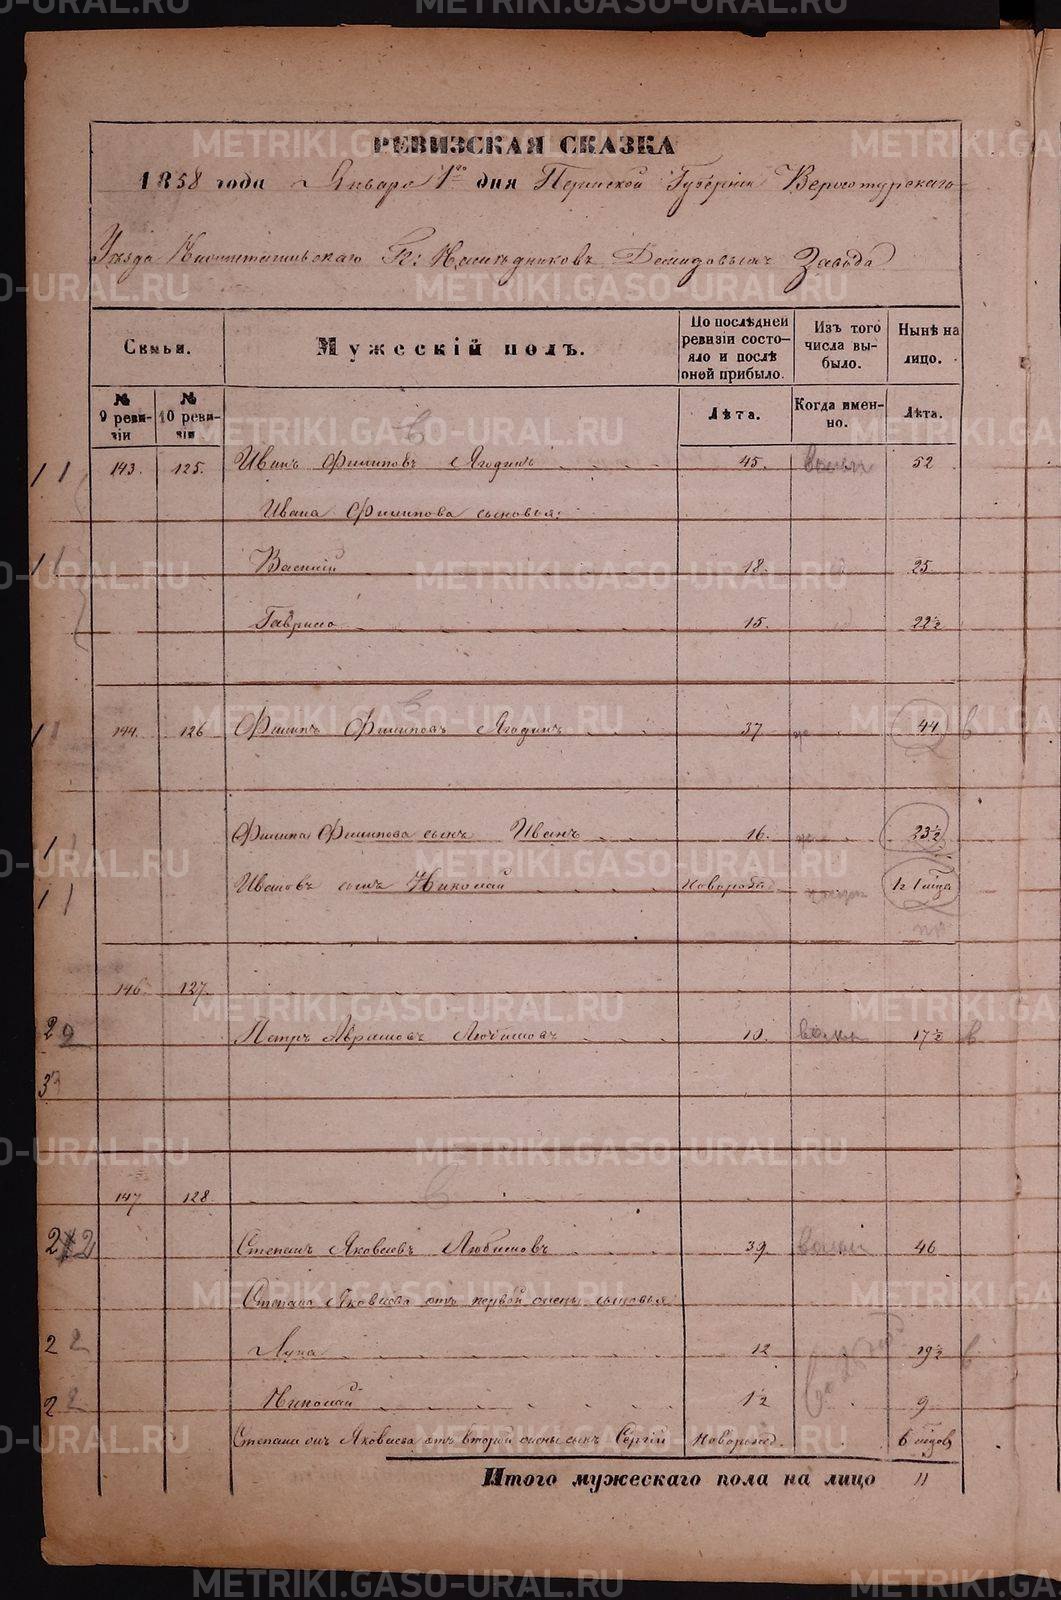 РЕВИЗСКАЯ СКАЗКА
1858 года Января 1го дня Пермской Губернии Верхотурскаго
Уезда Нижнетагильскаго Гг: Наследниковъ Демидовыхъ Завода
Семьи.
Мужескій полъ.
По последней ревизіи состояло и после оной прибыло.
Изъ того числа выбыло.
Ныне на лицо.
№ 9 ревизіи
№ 10 ревизіи
Лета.
Когда именно.
Лета.
11 143. 125. Иванъ Филиповъ Ягодинъ 45. 52
Ивана Филипова сыновья:
11 Василій 18. 25
Гаврило 15. 22½
11 144. 126 Филипъ Филиповъ Ягодинъ 37 44 в
11 Филипа Филипова сынъ Иванъ 16. 23½
11 Ивановъ сынъ Николай Новорожд 1 г 1 мца
146. 127.
2 2 Петръ Аврамовъ Любимовъ 10. 17½ в
3
147 128
2 2 Степанъ Яковлевъ Любимовъ 39. 46
Степана Яковлева отъ первой жены сыновья:
2 2 Лука 12 19½ в
2 2 Николай 1½ 9
Степана Яковлева отъ второй жены сынъ Сергій Новорожд. 6 мцовъ
Итого мужескаго пола на лицо 11
METRIKI.GASO-URAL.RU